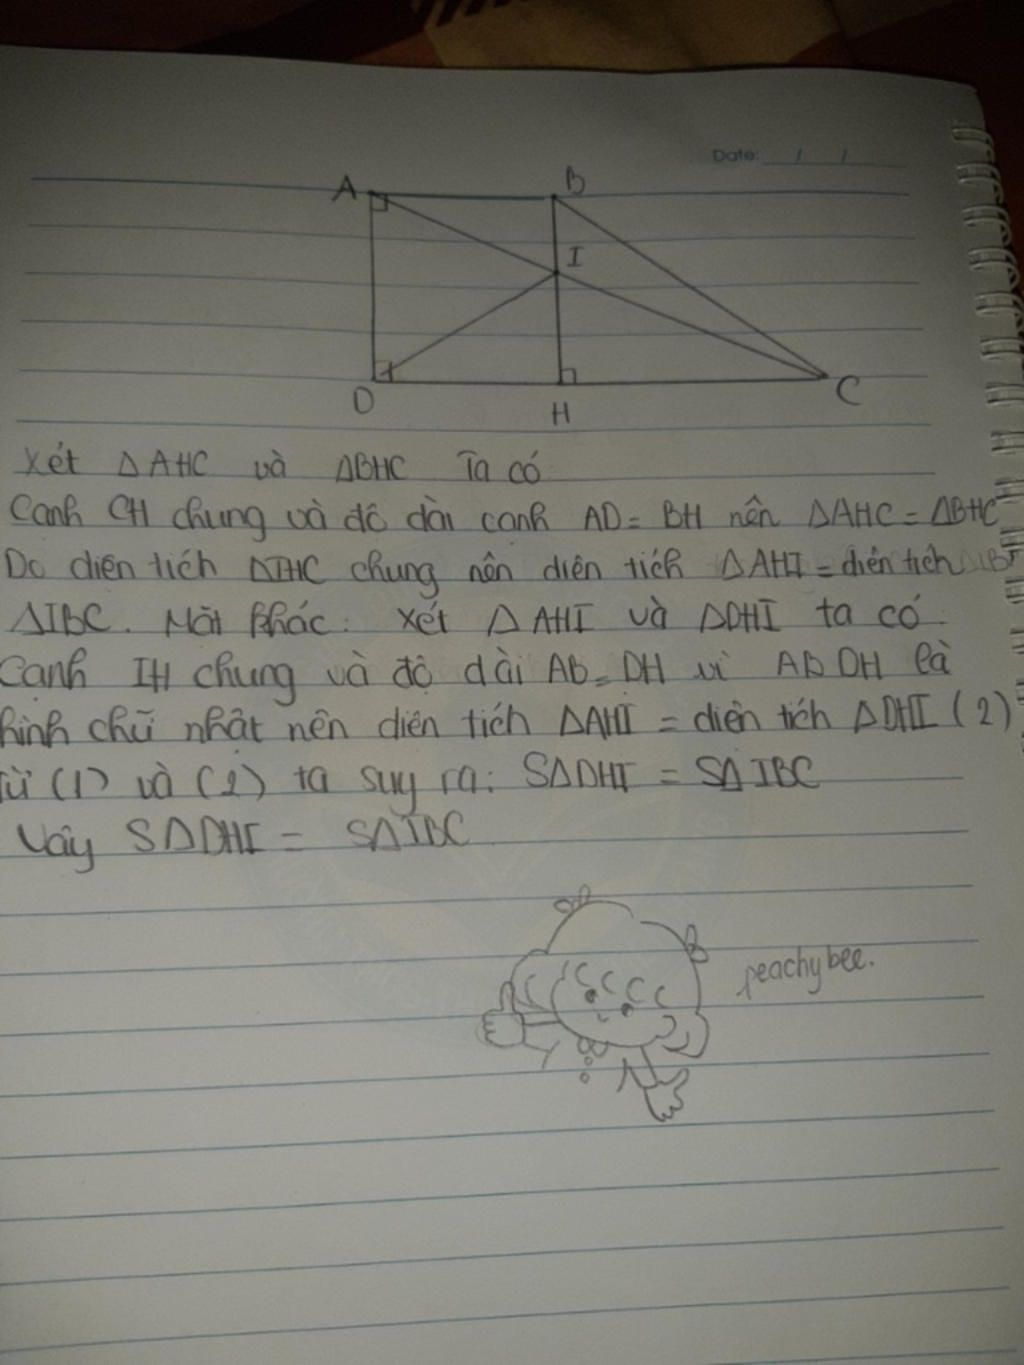 Date: / /
A
B
I
D
H
C
Xét ΔAHC và ΔBHC Ta có
Canh CH chung và độ dài canh AD = BH nên ΔAHC = ΔBHC
Do diện tích ΔIHC chung nên diên tich ΔAHI = diên tích
ΔIBC. Mặt khác: Xét ΔAHI và ΔDHI ta có
Canh IH chung và độ dài AB = DH vì ABDH là
hình chữ nhật nên diên tích ΔAHI = diên tích ΔDHI (2)
Từ (1) và (2) ta suy ra: SΔDHI = SΔIBC
Vậy SΔDHI = SΔIBC
peachybee.